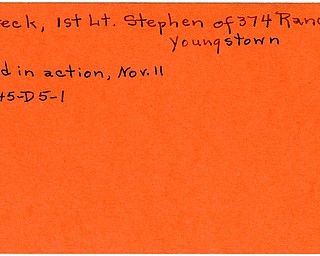 eck, 1st Lt. Stephen of 374 Rand
Youngstown
d in action, Nov. 11
45-D5-1